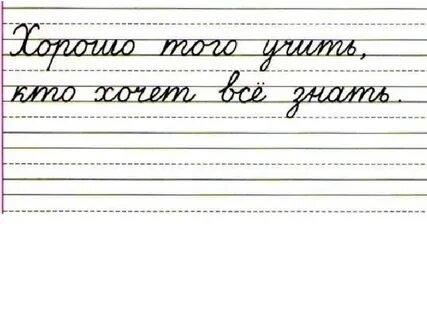 Хорошо того учить,
кто хочет всё знать.